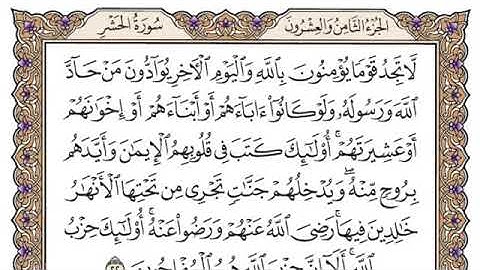 الجُزْءُ الثَّامِنُ وَالعِشْرُونَ سُورَةُ الحَشْرِ
لَّا تَجِدُ قَوْمًا يُؤْمِنُونَ بِٱللَّهِ وَٱلْيَوْمِ ٱلْأَخِرِ يُوَآدُّونَ مَنْ حَآدَّ
ٱللَّهَ وَرَسُولَهُۥ وَلَوْ كَانُوٓا۟ ءَابَآءَهُمْ أَوْ أَبْنَآءَهُمْ أَوْ إِخْوَٰنَهُمْ
أَوْ عَشِيرَتَهُمْ ۚ أُو۟لَٰٓئِكَ كَتَبَ فِى قُلُوبِهِمُ ٱلْإِيمَٰنَ وَأَيَّدَهُم
بِرُوحٍ مِّنْهُ ۖ وَيُدْخِلُهُمْ جَنَّٰتٍ تَجْرِى مِن تَحْتِهَا ٱلْأَنْهَٰرُ
خَٰلِدِينَ فِيهَا ۚ رَضِىَ ٱللَّهُ عَنْهُمْ وَرَضُوا۟ عَنْهُ ۚ أُو۟لَٰٓئِكَ حِزْبُ
ٱللَّهِ ۚ أَلَآ إِنَّ حِزْبَ ٱللَّهِ هُمُ ٱلْمُفْلِحُونَ ٢٢